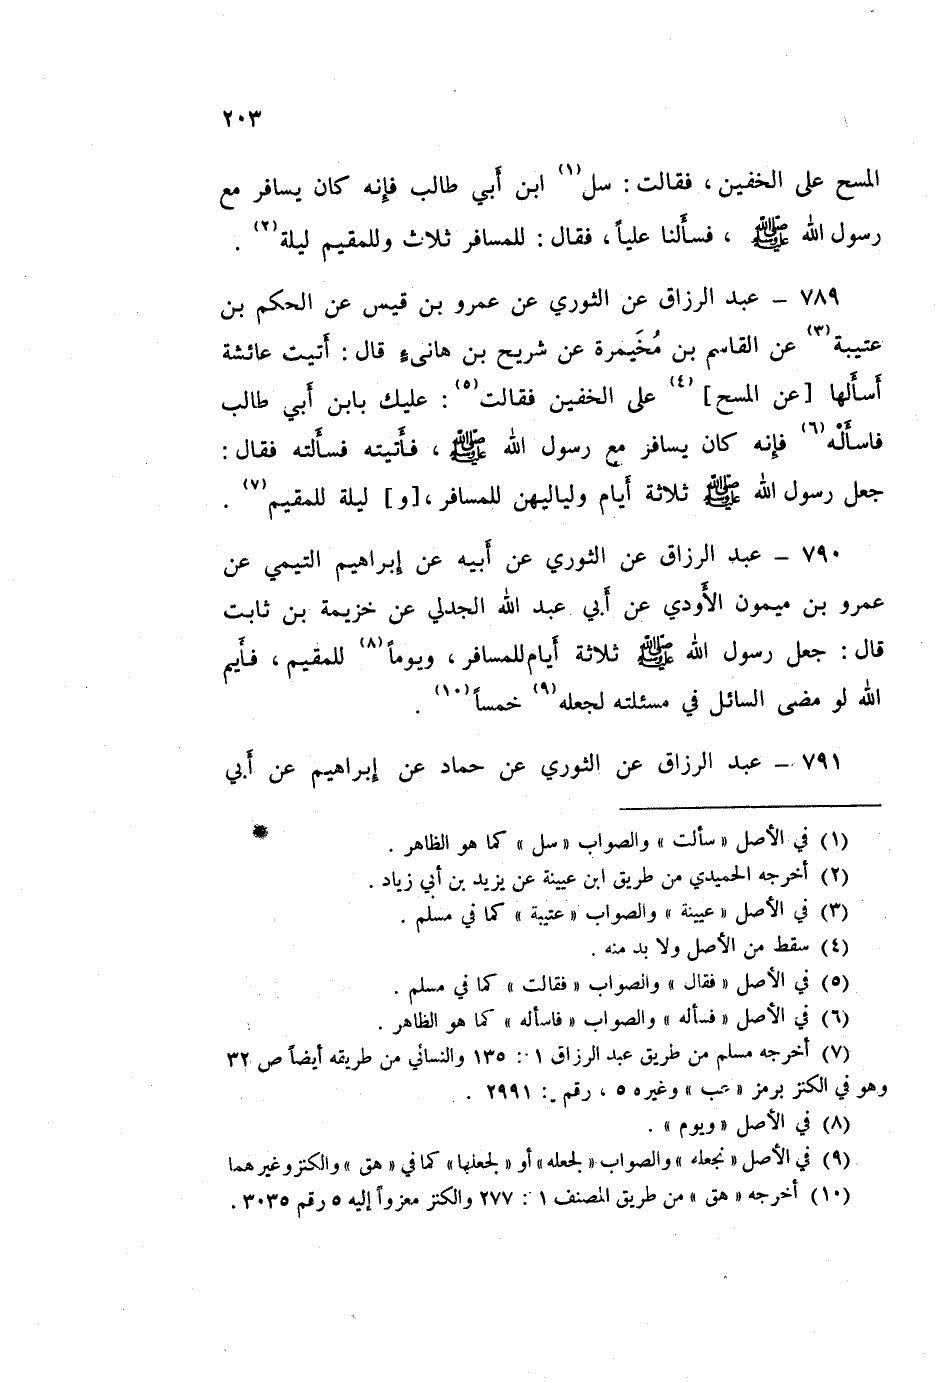 ٢٠٣
المسح على الخفين ، فقالت : سل(١) ابن أبي طالب فإنه كان يسافر مع
رسول الله ﷺ ، فسألنا علياً ، فقال : للمسافر ثلاث وللمقيم ليلة(٢) .
٧٨٩ – عبد الرزاق عن الثوري عن عمرو بن قيس عن الحكم بن
عتيبة(٣) عن القاسم بن مُخَيمرة عن شريح بن هانىء قال : أتيت عائشة
أسألها [عن المسح](٤) على الخفين فقالت(٥) : عليك بابن أبي طالب
فاسألْه(٦) فإنه كان يسافر مع رسول الله ﷺ ، فأتيته فسألته فقال :
جعل رسول الله ﷺ ثلاثة أيام ولياليهن للمسافر ،[و] ليلة للمقيم(٧) .
٧٩٠ – عبد الرزاق عن الثوري عن أبيه عن إبراهيم التيمي عن
عمرو بن ميمون الأودي عن أبي عبد الله الجدلي عن خزيمة بن ثابت
قال : جعل رسول الله ﷺ ثلاثة أيام للمسافر ، ويوماً(٨) للمقيم ، فأيم
الله لو مضى السائل في مسئلته لجعله(٩) خمساً(١٠) .
٧٩١ – عبد الرزاق عن الثوري عن حماد عن إبراهيم عن أبي
(١) في الأصل «سألت» والصواب «سل» كما هو الظاهر .
(٢) أخرجه الحميدي من طريق ابن عيينة عن يزيد بن أبي زياد .
(٣) في الأصل «عيينة» والصواب «عتيبة» كما في مسلم .
(٤) سقط من الأصل ولا بد منه .
(٥) في الأصل «فقال» والصواب «فقالت» كما في مسلم .
(٦) في الأصل «فسأله» والصواب «فاسأله» كما هو الظاهر .
(٧) أخرجه مسلم من طريق عبد الرزاق ١ : ١٣٥ والنسائي من طريقه أيضاً ص ٣٢
وهو في الكنز برمز «عب» وغيره ٥ ، رقم : ٢٩٩١ .
(٨) في الأصل «ويوم» .
(٩) في الأصل «نجعله» والصواب «لجعله» أو «لجعلها» كما في «هق» والكنز وغيرهما
(١٠) أخرجه «هق» من طريق المصنف ١ : ٢٧٧ والكنز معزواً إليه ٥ رقم ٣٠٣٥ .